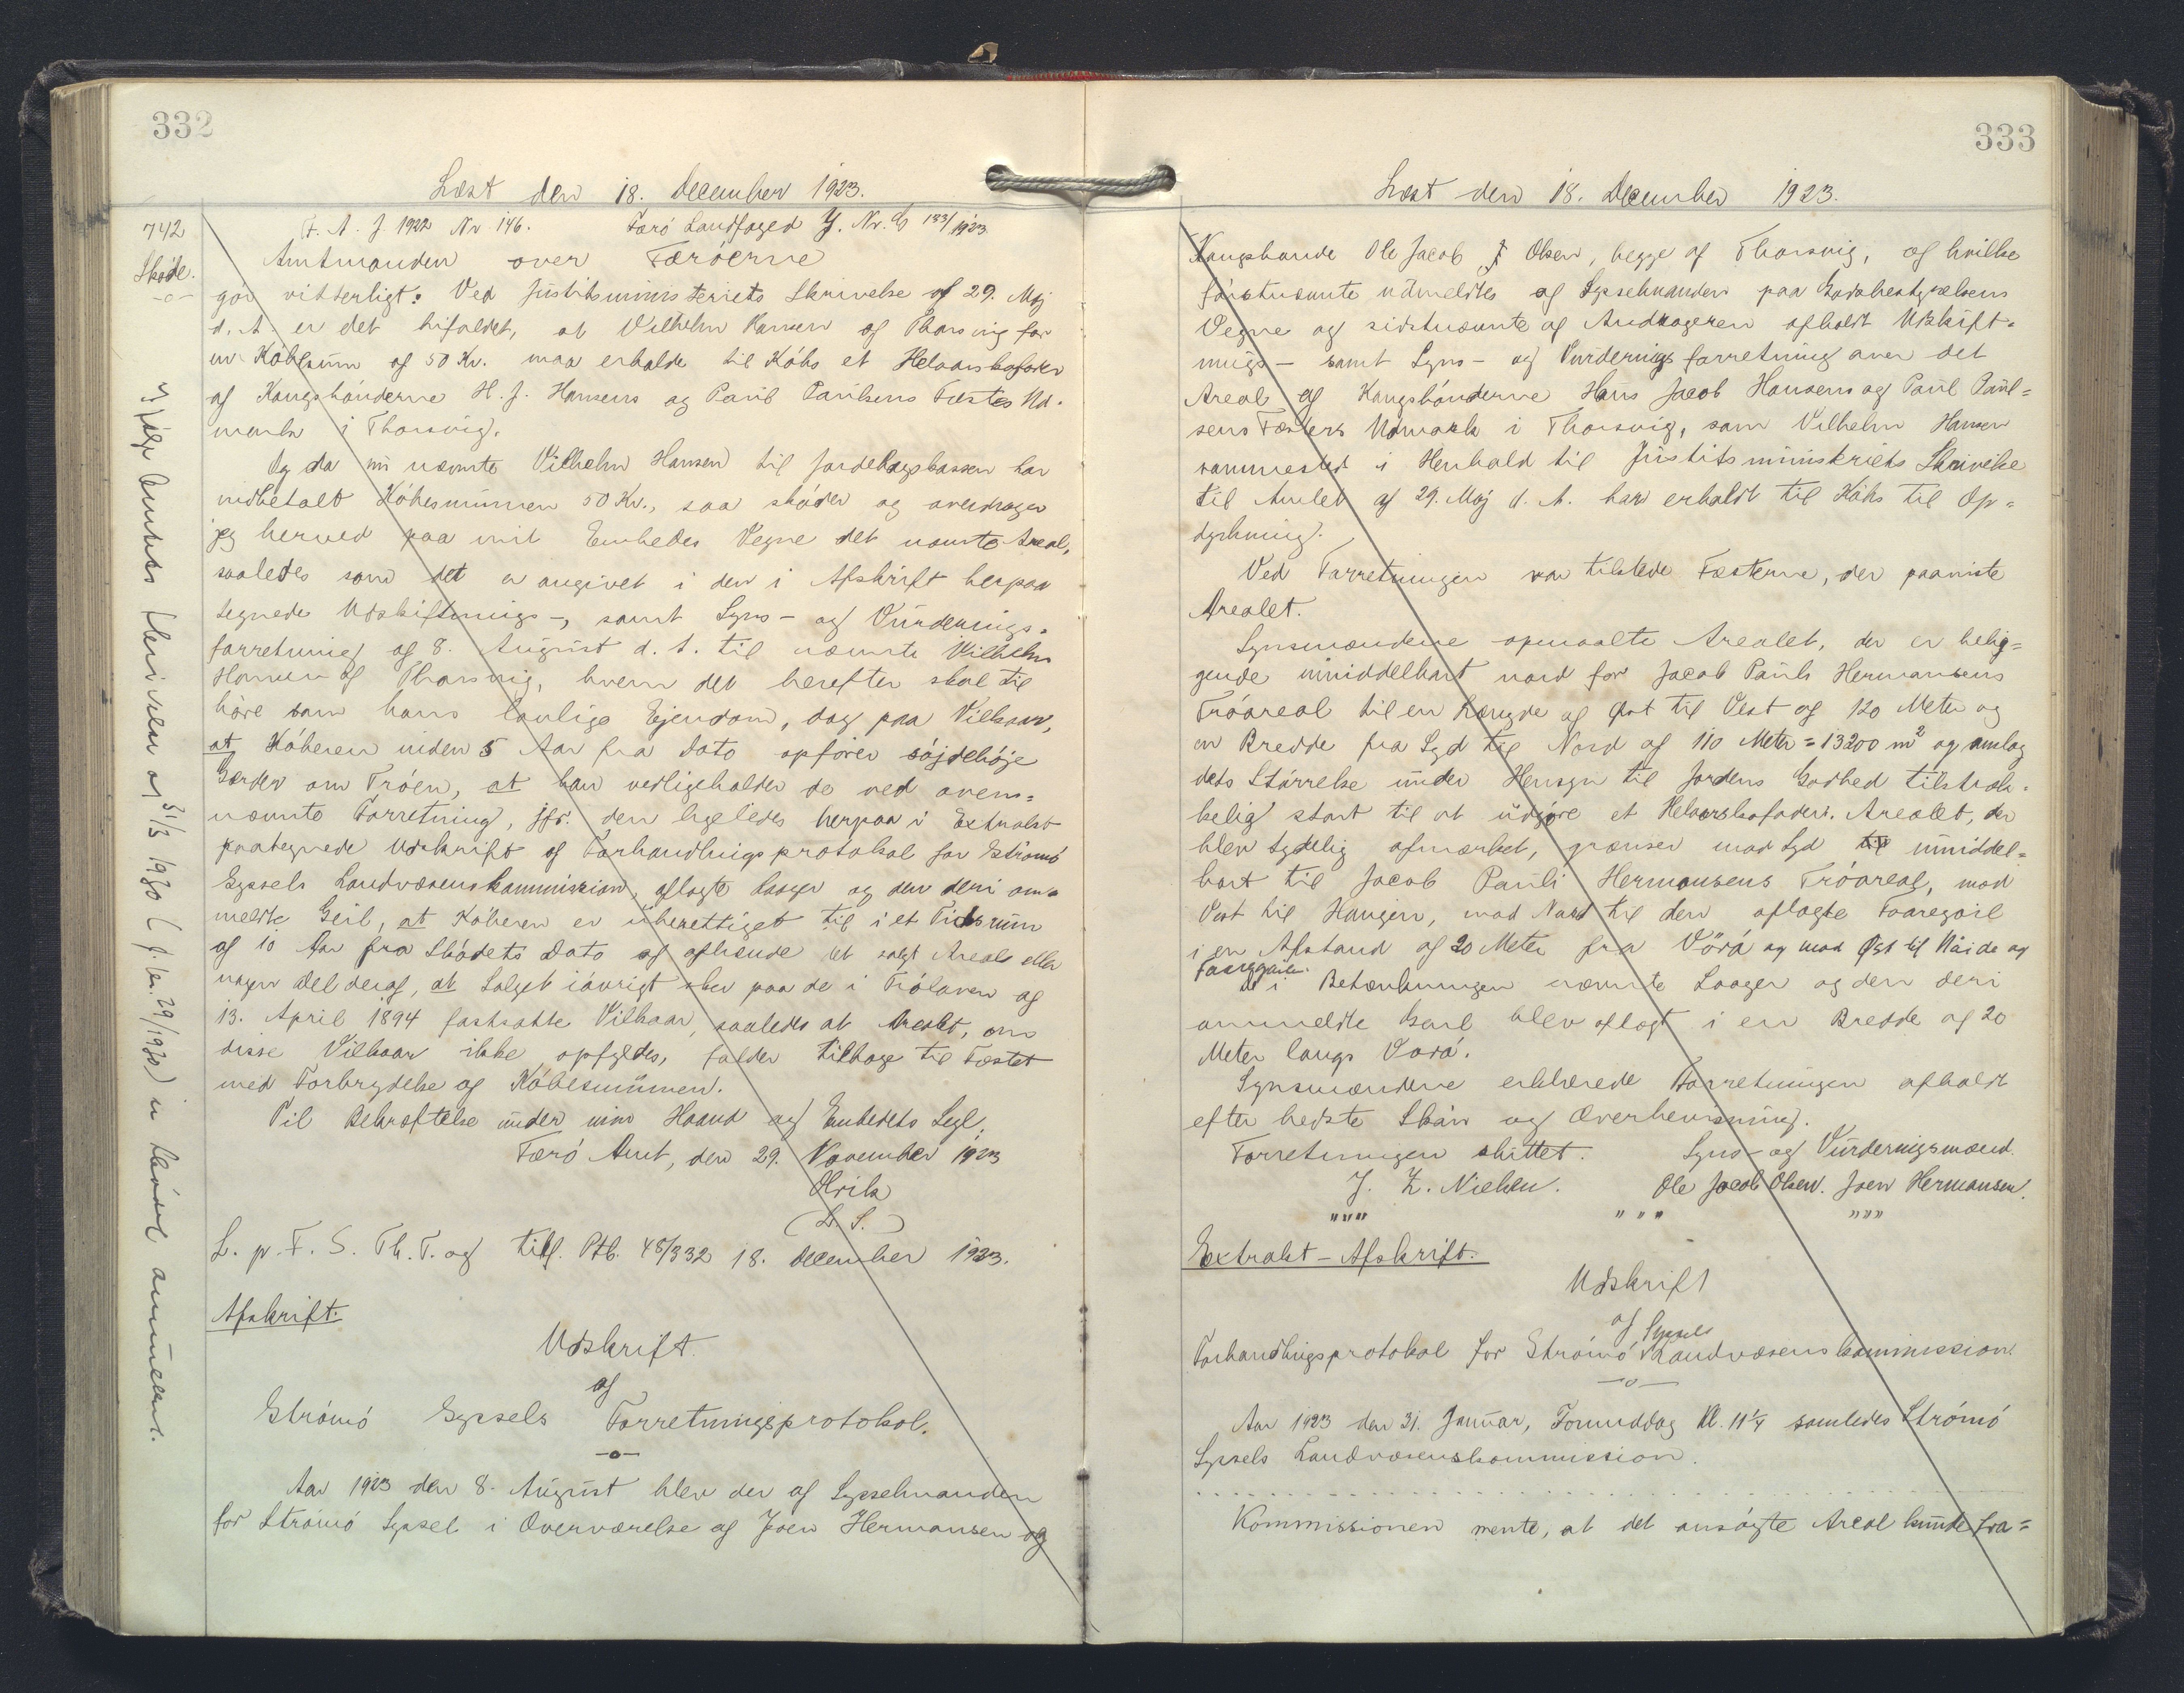 332
Læst den 18. December 1923.
742
Skøde.
F. A. J 1922 Nr 146. Færö Landfoged J. Nr. 133/1923
Amtmanden over Færöerne
gör vitterligt: Ved Justitsministeriets Skrivelse af 29. Maj
d. A. er det bifaldet, at Vilhelm Hansen af Thorsvig for
en Köbesum af 50 Kr. maa erholde til Köbs et Helaarskofoder
af Kongsbönderne H. J. Hansens og Paul Paulsens Fæstes Ud-
mark i Thorsvig.
Og da nu nævnte Vilhelm Hansen til Jordebogskassen har
indbetalt Köbesummen 50 Kr., saa sköder og overdrager
jeg herved paa mit Embedes Vegne det nævnte Areal,
saaledes som det er angivet i den i Afskrift herpaa
tegnede Udskiftnings-, samt Syns- og Vurderings-
forretning af 8. August d. A. til nævnte Vilhelm
Hansen af Thorsvig, hvem det herefter skal til
höre som hans lovlige Ejendom, dog paa Vilkaar,
at Köberen inden 5 Aar fra Dato opförer söjdehöje
Gærder om Tröen, at han vedligeholder de ved oven-
nævnte Forretning, jfr. den ligeledes herpaa i Extrakt
paategnede Udskrift af Forhandlingsprotokol for Strömö
Syssels Landvæsenskommission, aflagte Laager og den deri om-
meldte Geil, at Köberen er uberettiget til i et Tidsrum
af 10 Aar fra Sködets Dato at afhænde det solgte Areal eller
nogen Del deraf, at Salget iövrigt sker paa de i Trölaven af
13. April 1894 fastsatte Vilkaar, saaledes at Arealet, om
disse Vilkaar ikke opfyldes, falder tilbage til Fæstet
med Forbrydelse af Köbesummen.
Til Bekræftelse under min Haand og Embedets Segl.
Færö Amt, den 29. November 1923
(L. S.)
L. p. F. S. Th. T. og tilf. Ptb. 48/332 18. December 1923.
Afskrift.
Udskrift
af
Strömö Syssels Forretningsprotokol.
-o-
Aar 1923 den 8. August blev der af Sysselmanden
for Strömö Syssel i Overværelse af Joen Hermansen og
Ifølge Amtets Skrivelse af 31/3 1930 (J. Nr. 29/1930) er Skødet annulleret.
333
Læst den 18. December 1923.
Kongsbonde Ole Jacob J Olsen, begge af Thorsvig, af hvilke
förstnævnte udmeldtes af Sysselmanden paa Godsbestyrelsens
Vegne og sidstnævnte af Andrageren afholdt Udskift-
nings- samt Syns- og Vurderingsforretning over det
Areal af Kongsbönderne Hans Jacob Hansens og Paul Paul-
sens Fæsters Udmark i Thorsvig, som Vilhelm Hansen
sammested i Henhold til Justitsministeriets Skrivelse
til Amtet af 29. Maj d. A. har erholdt til Köbs til Op-
dyrkning.
Ved Forretningen var tilstede Fæsterne, der paaviste
Arealet.
Synsmændene opmaalte Arealet, der er belig-
gende umiddelbart nord for Jacob Pauli Hermansens
Tröareal til en Længde af Öst til Vest af 120 Meter og
en Bredde fra Syd til Nord af 110 Meter = 13200 m² og ansaa
dets Störrelse under Hensyn til Jordens Godhed tilstræk-
kelig stort til at udgöre et Helaarskofoder. Arealet, der
blev tydelig afmærket, grænser mod Syd til umiddel-
bart til Jacob Pauli Hermansens Tröareal, mod
Vest til Haugen, mod Nord til den aflagte Faaregeil
i en Afstand af 20 Meter fra Vörá og mod Öst til og
Faaregeilen.
De i Betænkningen nævnte Laager og den deri
ommeldte Geil blev aflagt i en Bredde af 20
Meter langs Vörá.
Synsmændene erklærede Forretningen afholdt
efter bedste Skön og Overbevisning.
Forretningen sluttet. Syns- og Vurderingsmænd.
J. Z. Nielsen. Ole Jacob Olsen. Joen Hermansen.
"""" """ """
Extrakt-Afskrift.
Udskrift
af
Forhandlingsprotokol for Strömö Syssels Landvæsenskommission.
-o-
Aar 1923 den 31. Januar, Formiddag Kl. 11¼ samledes Strömö
Syssels Landvæsenskommission.
Kommissionen mente, at det ansögte Areal kunde fra-